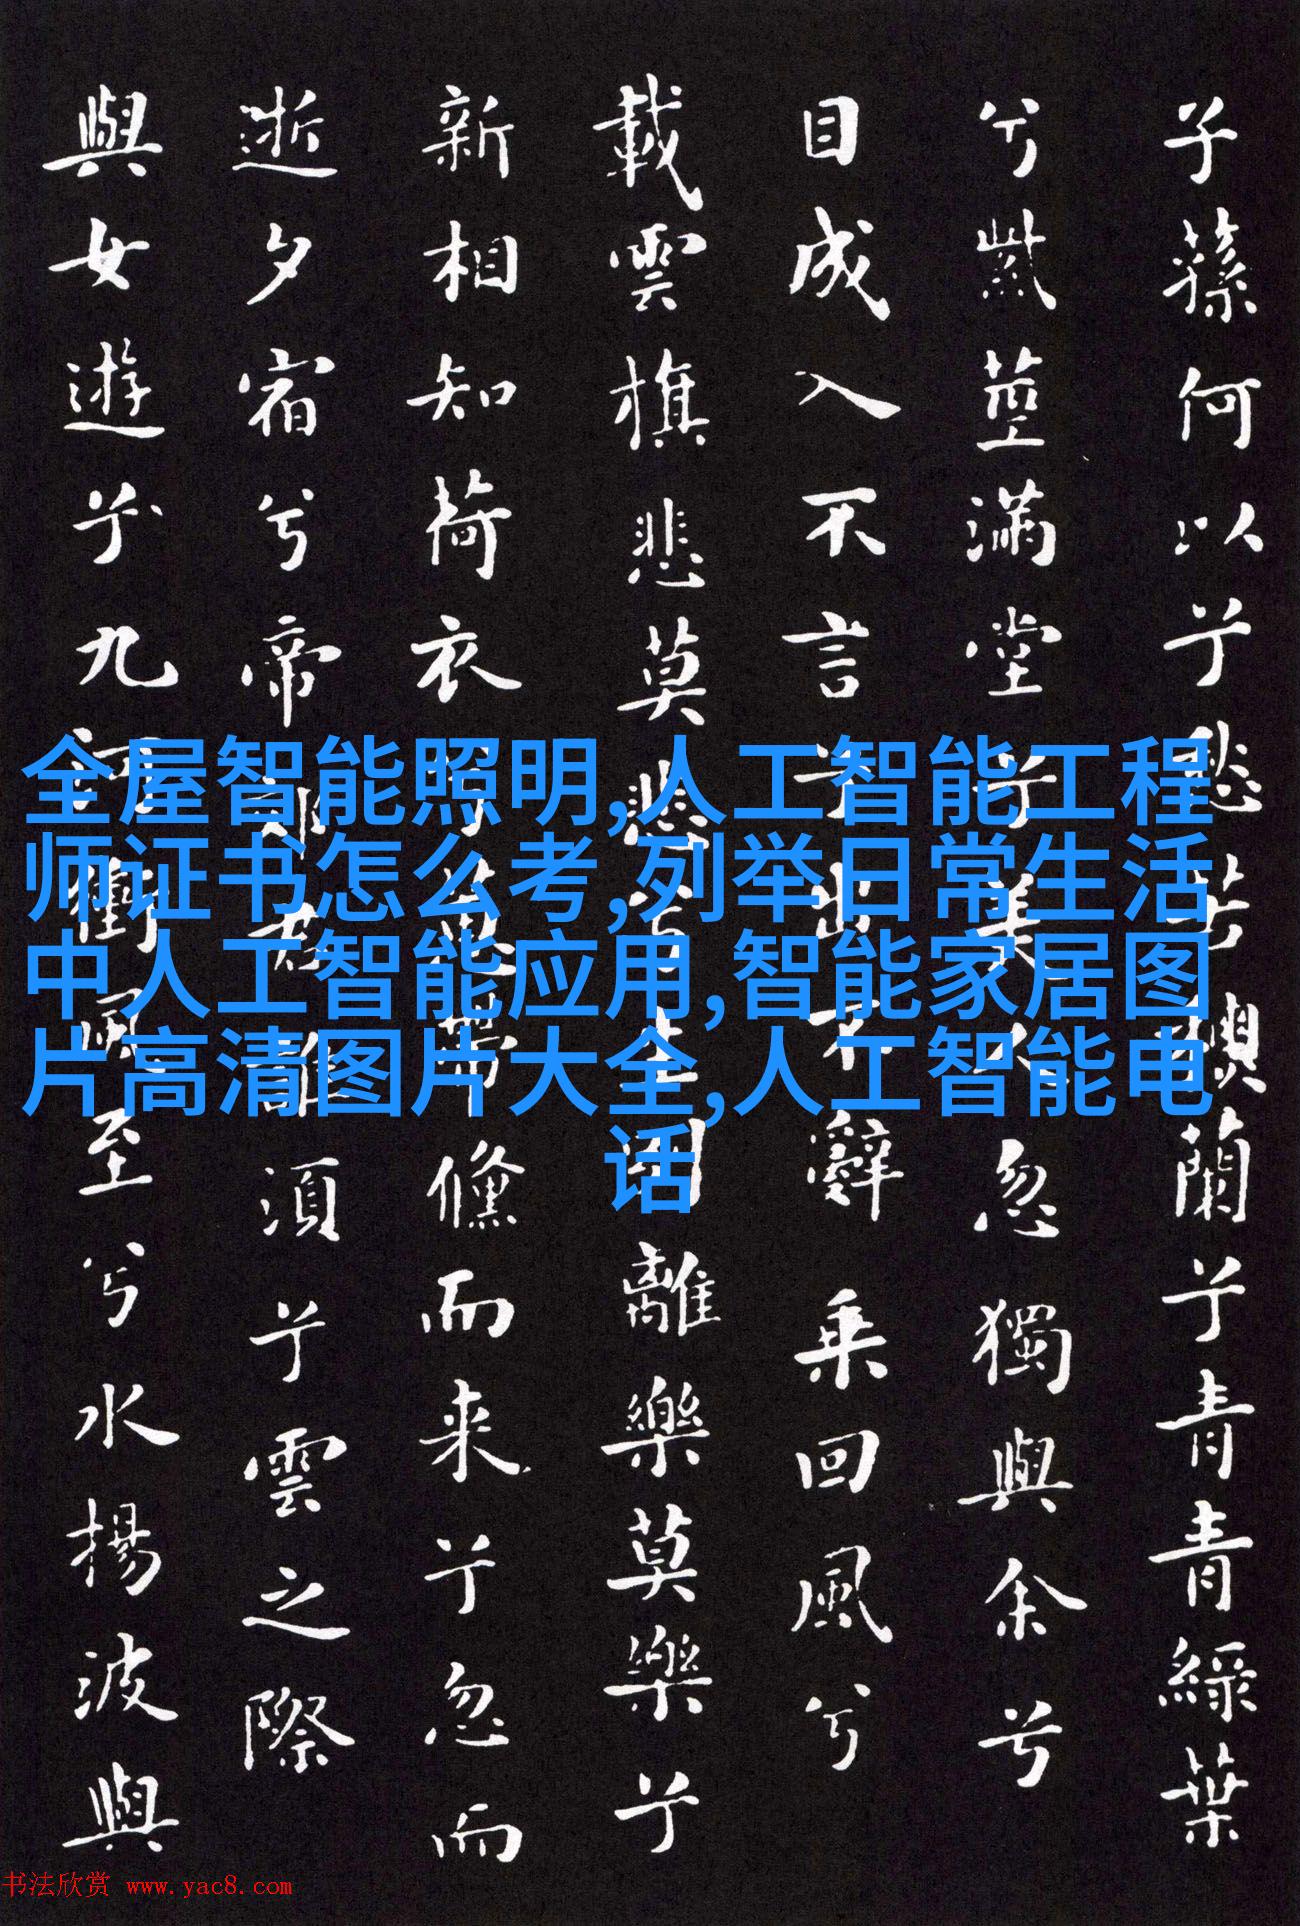 子蓀何以兮愁苦蘭兮青青綠葉
兮紫莖滿堂兮美人忽獨與余兮
目成入不言兮出不辭乘回風兮
載雲旗悲莫悲兮生別離樂莫樂兮
新相知荷衣兮蕙帶儵而来兮忽而
逝夕宿兮帝郊君誰須兮雲之際
與女遊兮九河衝風至兮水揚波與
全屋智能照明,人工智能工程
师证书怎么考,列举日常生活
中人工智能应用,智能家居图
片高清图片大全,人工智能电
话
书法欣赏 www.yac8.com